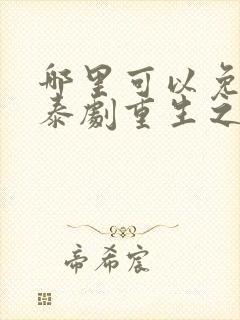 哪里可以免
泰劇重生之
帝希宸